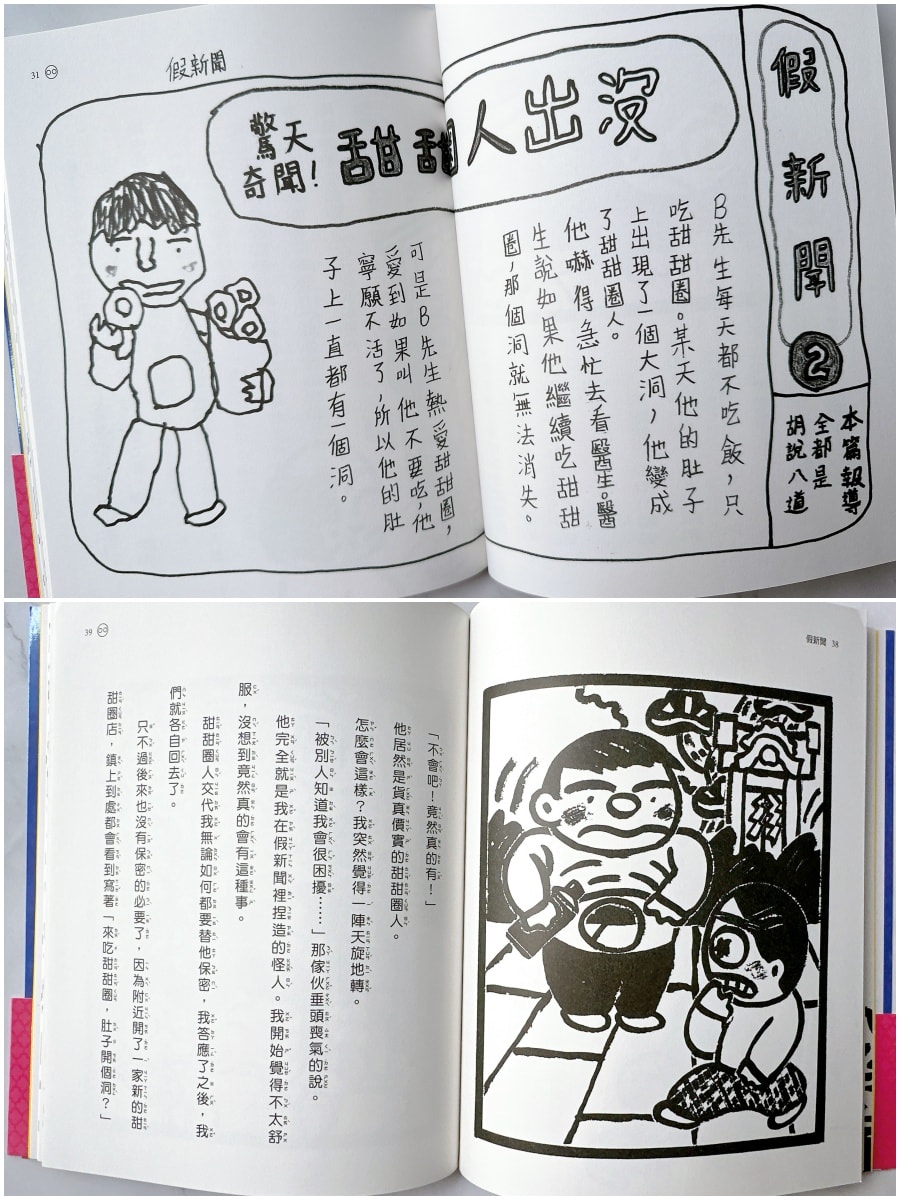 假新聞
2
本篇報導
全都是
胡說八道
驚天
奇聞!
甜甜圈人出沒
B先生每天都不吃飯,只
吃甜甜圈。某天他的肚子
上出現了一個大洞,他變成
了甜甜圈人。
他嚇得急忙去看醫生。醫
生說如果他繼續吃甜甜
圈,那個洞就無法消失。
可是B先生熱愛甜甜圈,
愛到如果叫他不要吃,他
寧願不活了,所以他的肚
子上一直都有一個洞。
31
假新聞
假新聞 38
「不會吧!竟然真的有!」
他居然是貨真價實的甜甜圈人。
怎麼會這樣?我突然覺得一陣天旋地轉。
「被別人知道我會很困擾……」那傢伙垂頭喪氣的說。
他完全就是我在假新聞裡捏造的怪人。我開始覺得不太舒
服,沒想到竟然真的會有這種事。
甜甜圈人交代我無論如何都要替他保密,我答應了之後,我
們就各自回去了。
只不過後來也沒有保密的必要了,因為附近開了一家新的甜
甜圈店,鎮上到處都會看到寫著「來吃甜甜圈,肚子開個洞?」
39